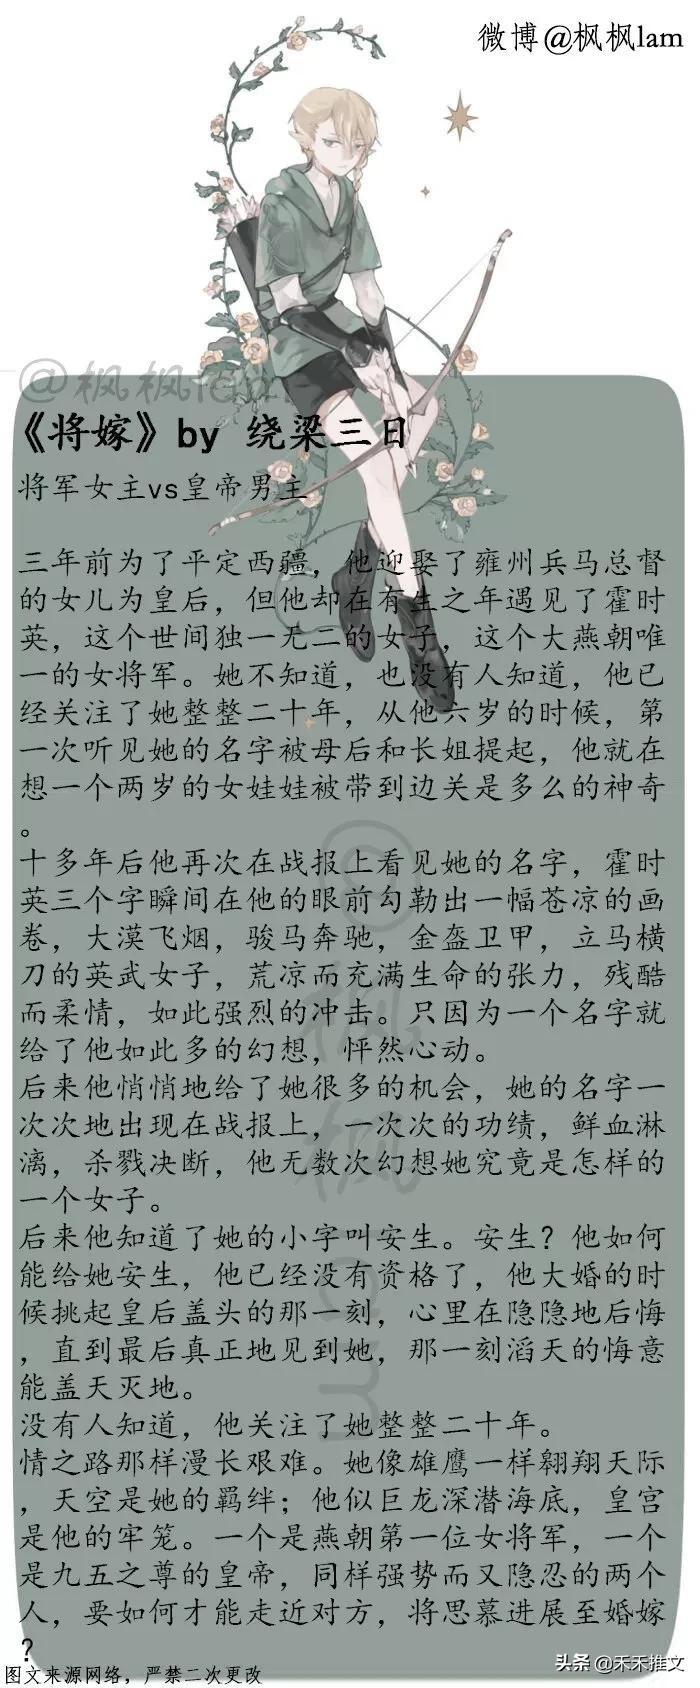 微博@枫枫lam
@枫枫lam
《将嫁》by 绕梁三日
将军女主vs皇帝男主
三年前为了平定西疆，他迎娶了雍州兵马总督
的女儿为皇后，但他却在有生之年遇见了霍时
英，这个世间独一无二的女子，这个大燕朝唯
一的女将军。她不知道，也没有人知道，他已
经关注了她整整二十年，从他六岁的时候，第
一次听见她的名字被母后和长姐提起，他就在
想一个两岁的女娃娃被带到边关是多么的神奇
。
十多年后他再次在战报上看见她的名字，霍时
英三个字瞬间在他的眼前勾勒出一幅苍凉的画
卷，大漠飞烟，骏马奔驰，金盔卫甲，立马横
刀的英武女子，荒凉而充满生命的张力，残酷
而柔情，如此强烈的冲击。只因为一个名字就
给了他如此多的幻想，怦然心动。
后来他悄悄地给了她很多的机会，她的名字一
次次地出现在战报上，一次次的功绩，鲜血淋
漓，杀戮决断，他无数次幻想她究竟是怎样的
一个女子。
后来他知道了她的小字叫安生。安生？他如何
能给她安生，他已经没有资格了，他大婚的时
候挑起皇后盖头的那一刻，心里在隐隐地后悔
，直到最后真正地见到她，那一刻滔天的悔意
能盖天灭地。
没有人知道，他关注了她整整二十年。
情之路那样漫长艰难。她像雄鹰一样翱翔天际
，天空是她的羁绊；他似巨龙深潜海底，皇宫
是他的牢笼。一个是燕朝第一位女将军，一个
是九五之尊的皇帝，同样强势而又隐忍的两个
人，要如何才能走近对方，将思慕进展至婚嫁
？
@枫枫lam
图文来源网络，严禁二次更改
头条@禾禾推文